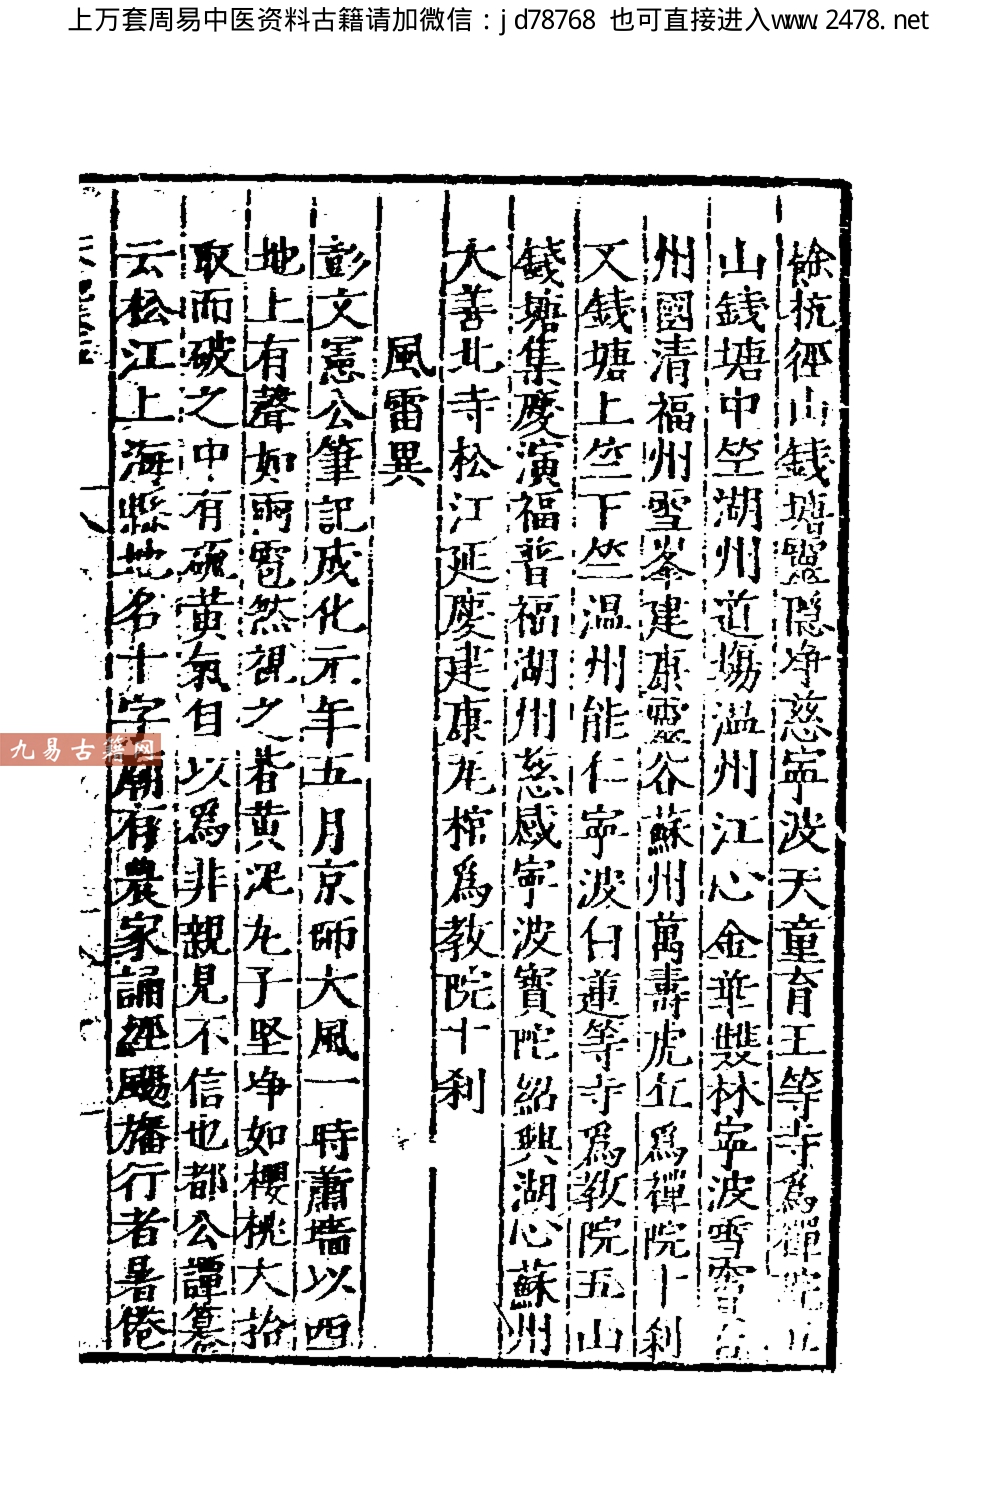 上万套周易中医资料古籍请加微信：jd78768 也可直接进入www.2478.net
餘杭徑山錢塘靈隱净慈寧波天童育王等寺為禪院五
山錢塘中竺湖州道塲温州江心金華雙林寧波雪竇台
州國清福州雪峯建康靈谷蘇州萬壽虎丘為禪院十刹
又錢塘上竺下竺温州能仁寧波白蓮等寺為教院五山
錢塘集慶演福普福湖州慈感寧波寶陀紹興湖心蘇州
大善北寺松江延慶建康瓦棺為教院十刹
風雷異
彭文憲公筆記成化元年五月京師大風一時蕭墻以西
地上有聲如雨雹然視之皆黄泥丸子堅净如櫻桃大拾
取而破之中有硫黄氣自以為非親見不信也都公譚纂
云松江上海縣地名十字廟有農家誦經颺旛行者暑倦
九易古籍网